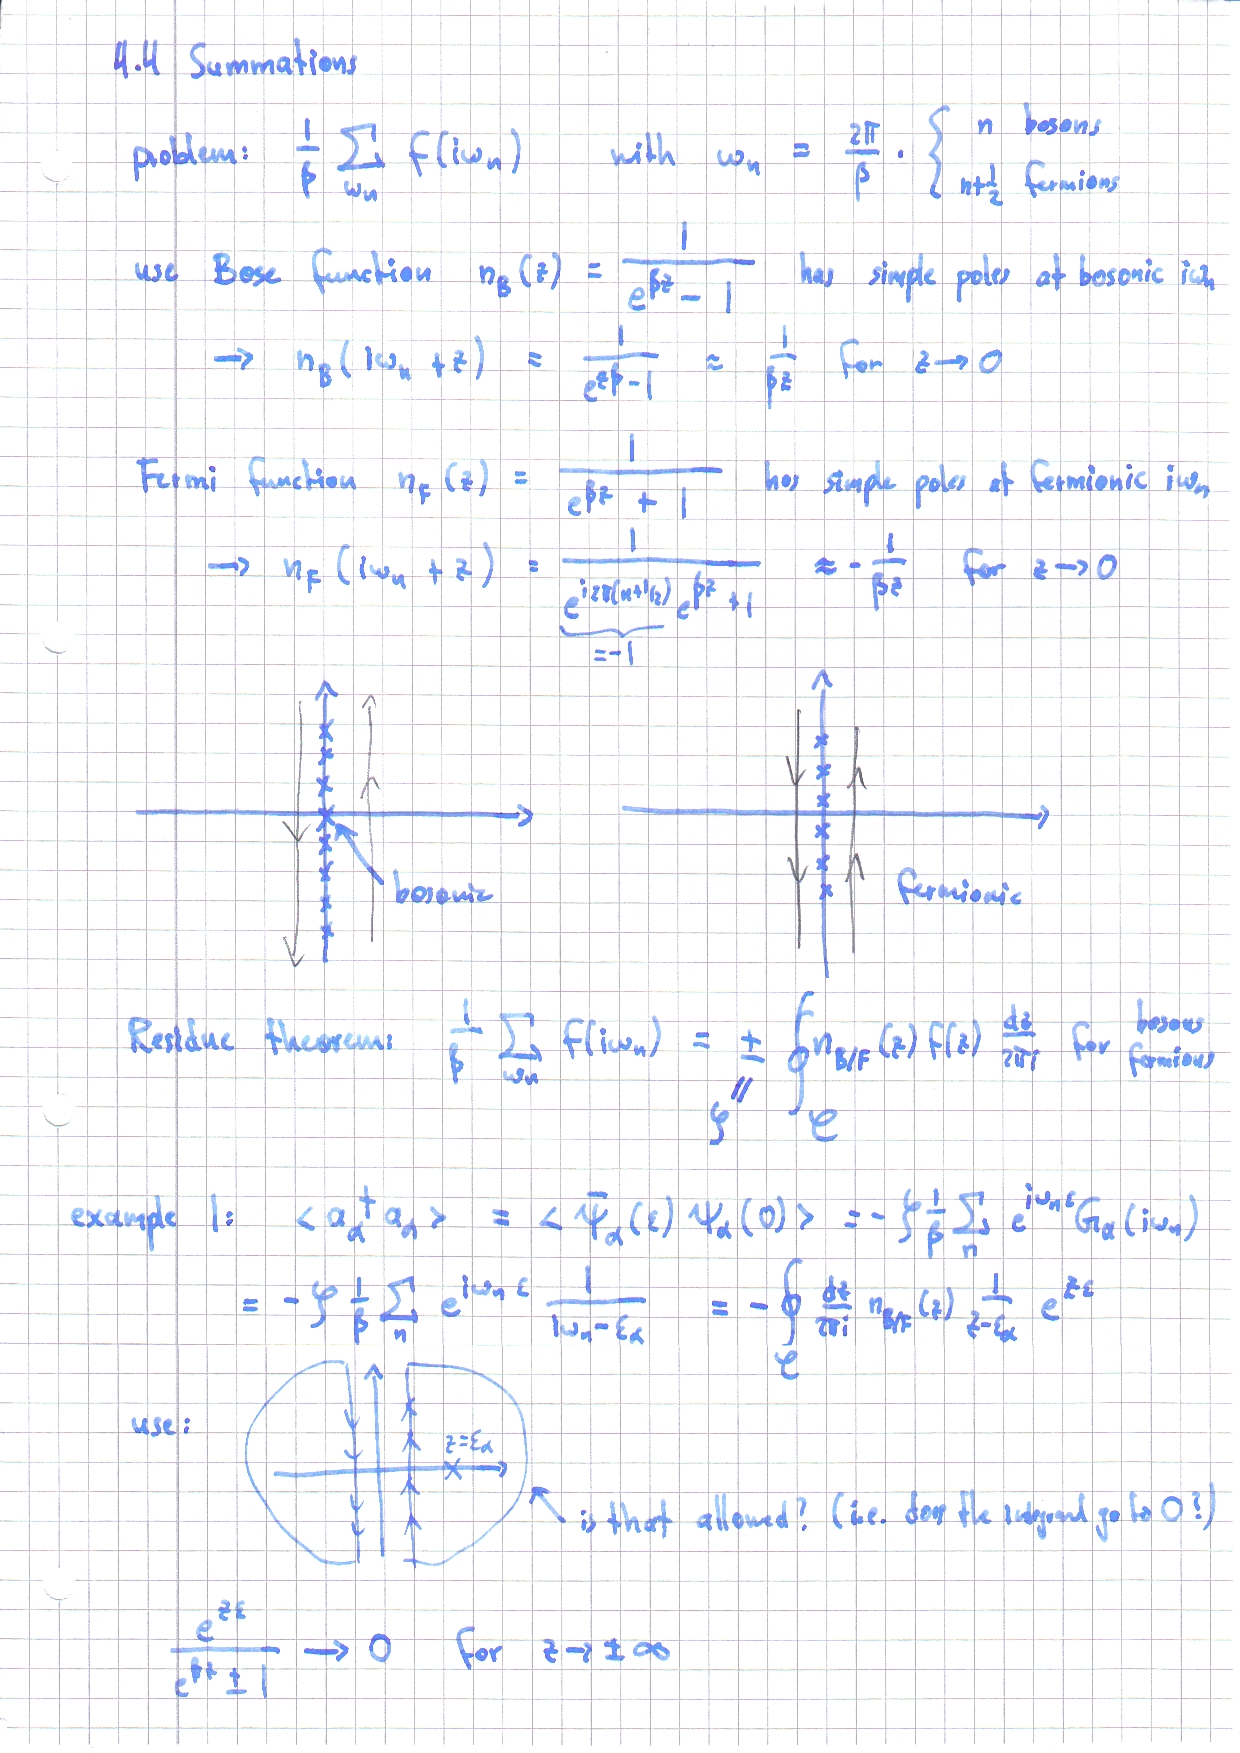 4.4 Summations
problem: 1/β Σ_{ωn} f(iωn) with ωn = 2π/β · { n bosons
n+1/2 fermions
use Bose function n_B(z) = 1/(e^{βz} − 1) has simple poles at bosonic iωn
→ n_B(iωn + z) = 1/(e^{zβ} − 1) ≈ 1/(βz) for z → 0
Fermi function n_F(z) = 1/(e^{βz} + 1) has simple poles at fermionic iωn
→ n_F(iωn + z) = 1/(e^{i2π(n+1/2)} e^{βz} + 1) ≈ − 1/(βz) for z → 0
= −1
bosonic
fermionic
Residue theorem: 1/β Σ_{ωn} f(iωn) = ± ∮_C n_{B/F}(z) f(z) dz/(2πi) for bosons
fermions
ζ
example 1: < a_α† a_α > = < Ψ̄_α(ε) Ψ_α(0) > = − ζ 1/β Σ_n e^{iωnε} G_α(iωn)
= − ζ 1/β Σ_n e^{iωnε} 1/(iωn − ε_α) = − ∮_C dz/(2πi) n_{B/F}(z) 1/(z − ε_α) e^{zε}
use:
z = ε_α
is that allowed? (i.e. does the integrand go to 0?)
e^{zε}/(e^{βz} ± 1) → 0 for z → ± ∞